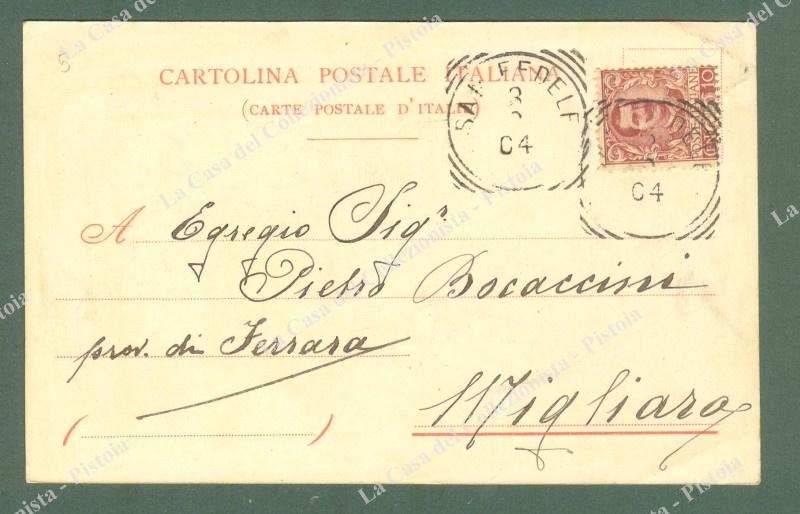 5
CARTOLINA POSTALE ITALIANA
(CARTE POSTALE D'ITALIE)
SAN FEDELE
3
04
04
10
A Egregio Sigr
Pietro Bocaccini
prov. di Ferrara
Migliaro
( )
La Casa del Collezionista - Pistoia